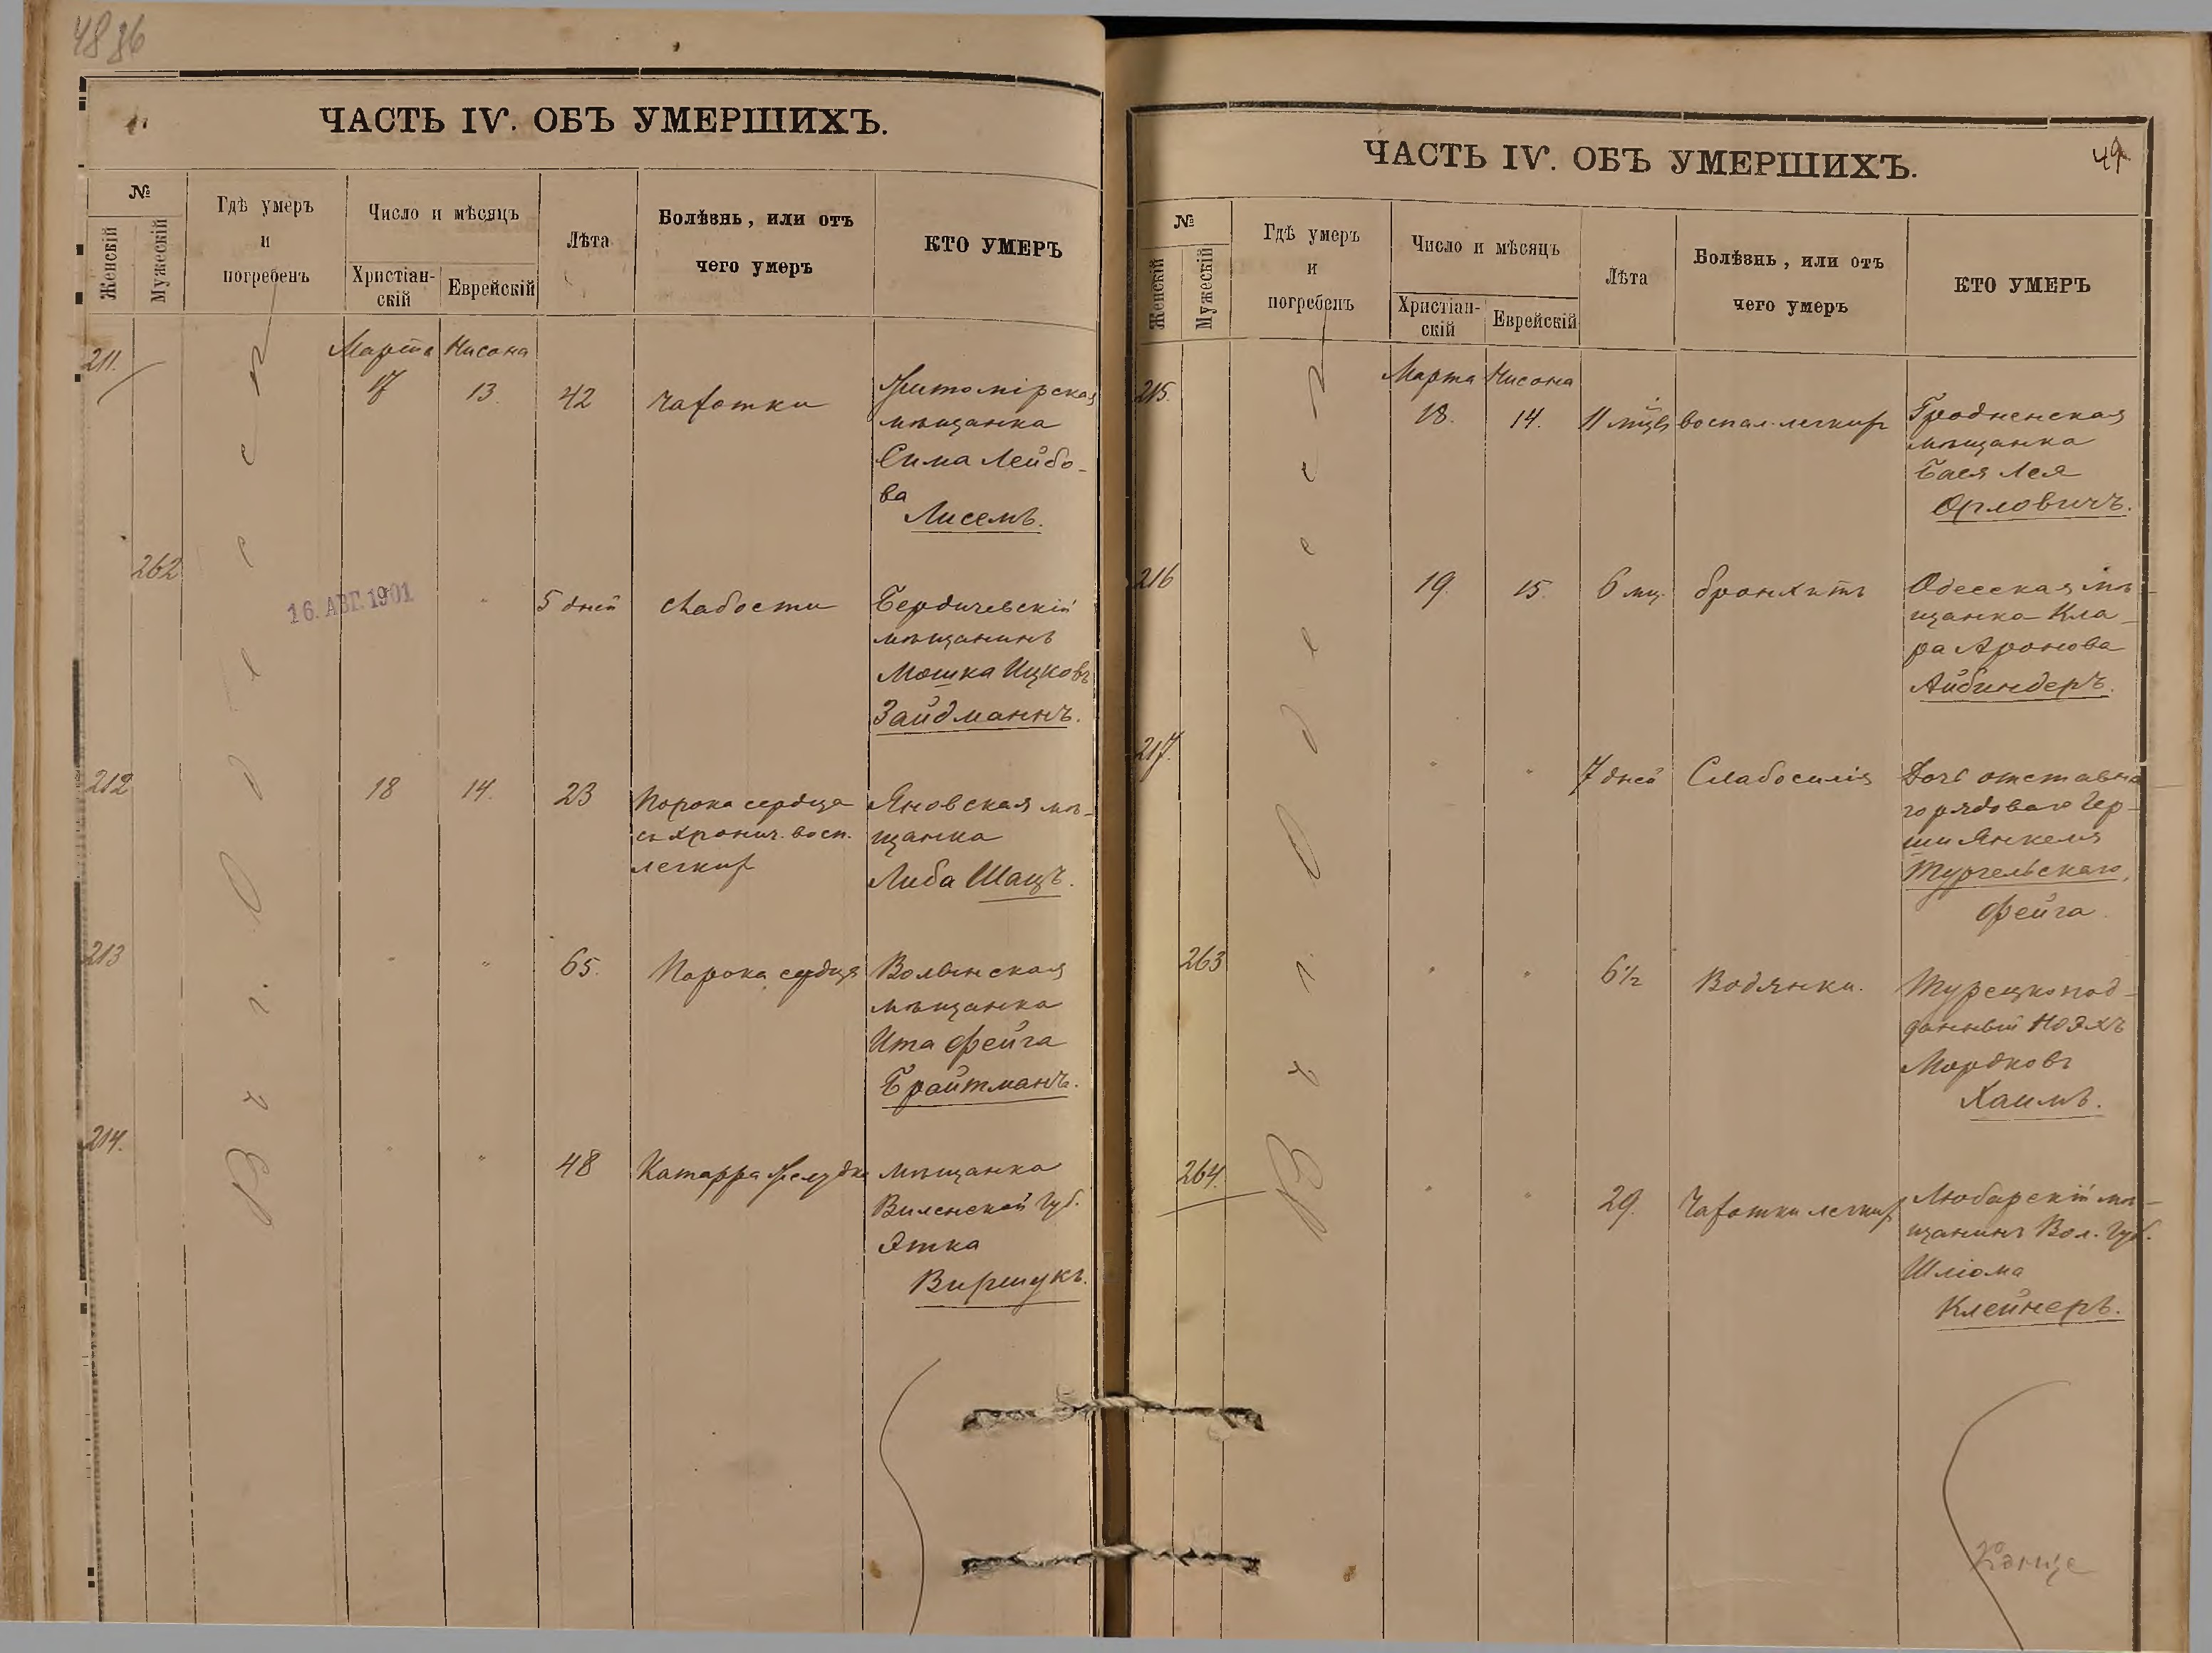 4886
ЧАСТЬ IV. ОБЪ УМЕРШИХЪ.
№
Женскій
Мужескій
Гдѣ умеръ
и
погребенъ
Число и мѣсяцъ
Христіан-
скій
Еврейскій
Лѣта
Болѣзнь, или отъ
чего умеръ
КТО УМЕРЪ
Въ г. Одессѣ
211.
Марта Нисона
17 13. 42 чахотки
Житомірская
мѣщанка
Сима Лейбо-
ва
Лисемъ.
262
16. АВГ. 1901
" 5 дней слабости
Бердичевскій
мѣщанинъ
Мошка Ицковъ
Зайдманнъ.
212 18 14. 23
Порока сердца
съ хронич. восп.
легкихъ
Яновская мѣ-
щанка
Либа Шацъ.
213 " " 65. Порока сердца
Волынская
мѣщанка
Ита Фейга
Брайтманъ.
214. " " 48 Катарра желудка
мѣщанка
Виленской Губ.
Этка
Виршукъ.
ЧАСТЬ IV. ОБЪ УМЕРШИХЪ.
49
№
Женскій
Мужескій
Гдѣ умеръ
и
погребенъ
Число и мѣсяцъ
Христіан-
скій
Еврейскій
Лѣта
Болѣзнь, или отъ
чего умеръ
КТО УМЕРЪ
Въ г. Одессѣ
215.
Марта Нисона
18. 14. 11 мцвъ воспал. легкихъ
Гродненская
мѣщанка
Бася Лея
Орловичъ.
216 19. 15. 6 мц. бронхитъ
Одесская мѣ-
щанка Кла-
ра Аронова
Айбиндеръ.
217. " " 7 дней Слабосилія
Дочь отставна
го рядоваго Гер-
ши Янкеля
Тургельскаго,
Фейга.
263 " " 6½ Водянки.
Турецкопод-
данный Ноэхъ
Мордковъ
Хаимъ.
264. " " 29. Чахотки легкихъ
Любарскій мѣ-
щанинъ Вол. Губ.
Шліома
Клейнеръ.